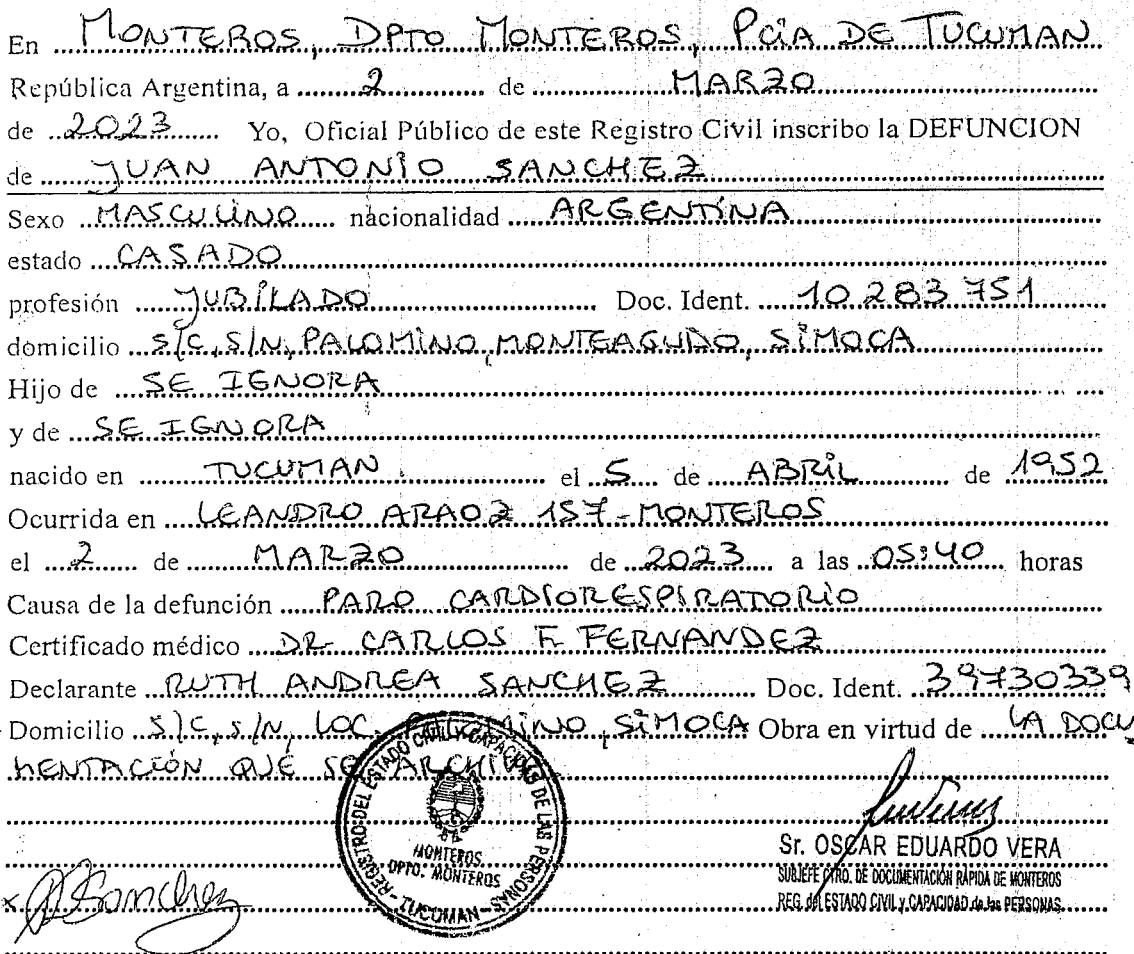 En MONTEROS, DPTO MONTEROS, PCIA DE TUCUMAN
República Argentina, a 2 de MARZO
de 2023 Yo, Oficial Público de este Registro Civil inscribo la DEFUNCION
de JUAN ANTONIO SANCHEZ
Sexo MASCULINO nacionalidad ARGENTINA
estado CASADO
profesión JUBILADO Doc. Ident. 10.283.751
domicilio S/C, S/N, PALOMINO, MONTEAGUDO, SIMOCA
Hijo de SE IGNORA
y de SE IGNORA
nacido en TUCUMAN el 5 de ABRIL de 1952
Ocurrida en LEANDRO ARAOZ 157 - MONTEROS
el 2 de MARZO de 2023 a las 05:40 horas
Causa de la defunción PARO CARDIORESPIRATORIO
Certificado médico DR. CARLOS F. FERNANDEZ
Declarante RUTH ANDREA SANCHEZ Doc. Ident. 39730339
Domicilio S/C, S/N, LOC. PALOMINO, SIMOCA Obra en virtud de LA DOCU
MENTACIÓN QUE SE ARCHIVA
REGISTRO DEL ESTADO CIVIL Y CAPACIDAD DE LAS PERSONAS
MONTEROS
DPTO. MONTEROS
- TUCUMAN -
Sr. OSCAR EDUARDO VERA
SUBJEFE CTRO. DE DOCUMENTACIÓN RÁPIDA DE MONTEROS
REG. del ESTADO CIVIL y CAPACIDAD de las PERSONAS
x RSanchez